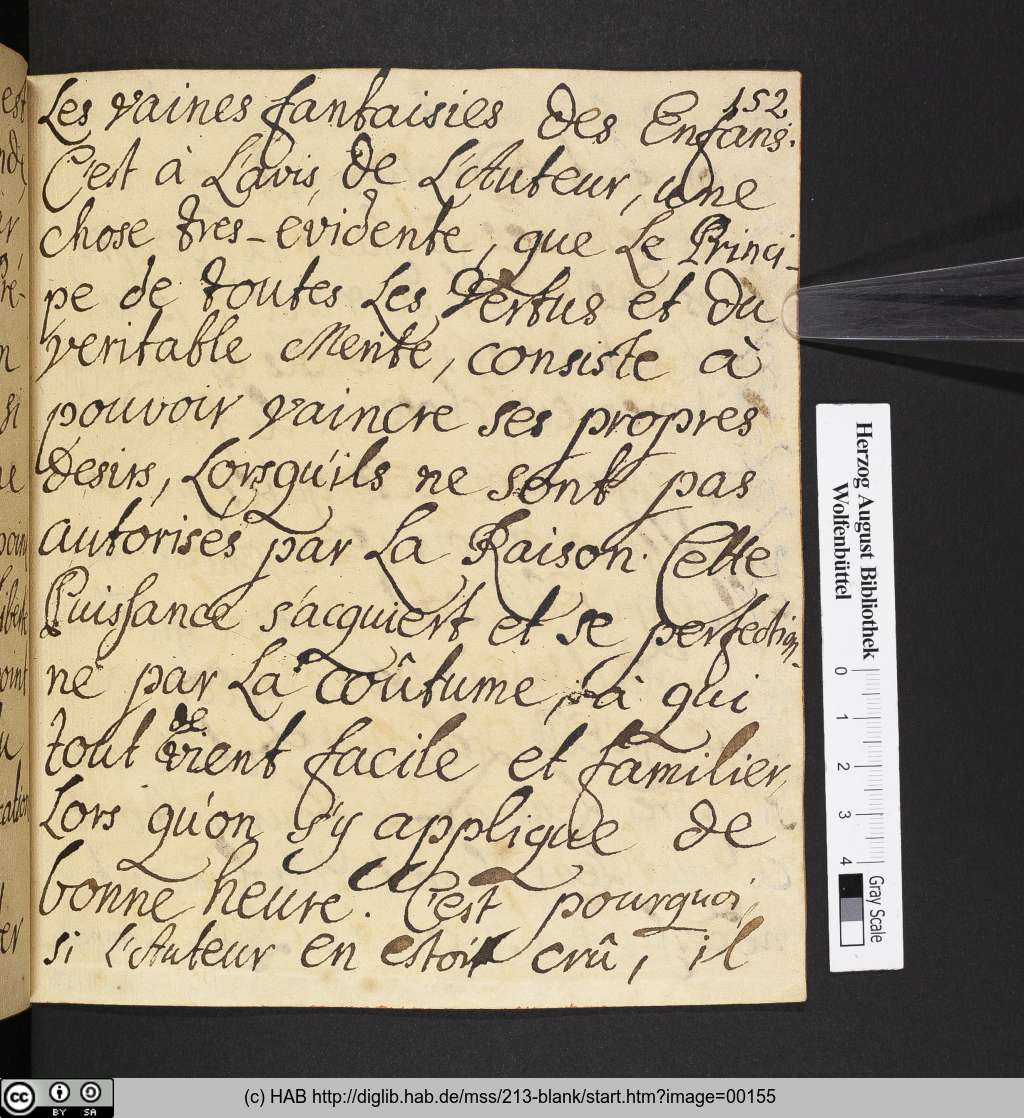 152
Les vaines fantaisies des Enfans.
C'est à L'avis, de L'Auteur, une
chose tres-evidente, que Le Princi-
pe de toutes Les Vertus et du
veritable Merite, consiste à
pouvoir vaincre ses propres
desirs, Lorsqu'ils ne sont pas
autorisés par La Raison. Cette
Puissance s'acquiert et se perfection-
ne par La coûtume, à qui
tout devient facile et familier,
Lors qu'on s'y applique de
bonne heure. C'est pourquoi,
si L'Auteur en estoit crû, il
Herzog August Bibliothek
Wolfenbüttel
0 1 2 3 4
Gray Scale
cc BY SA
(c) HAB http://diglib.hab.de/mss/213-blank/start.htm?image=00155